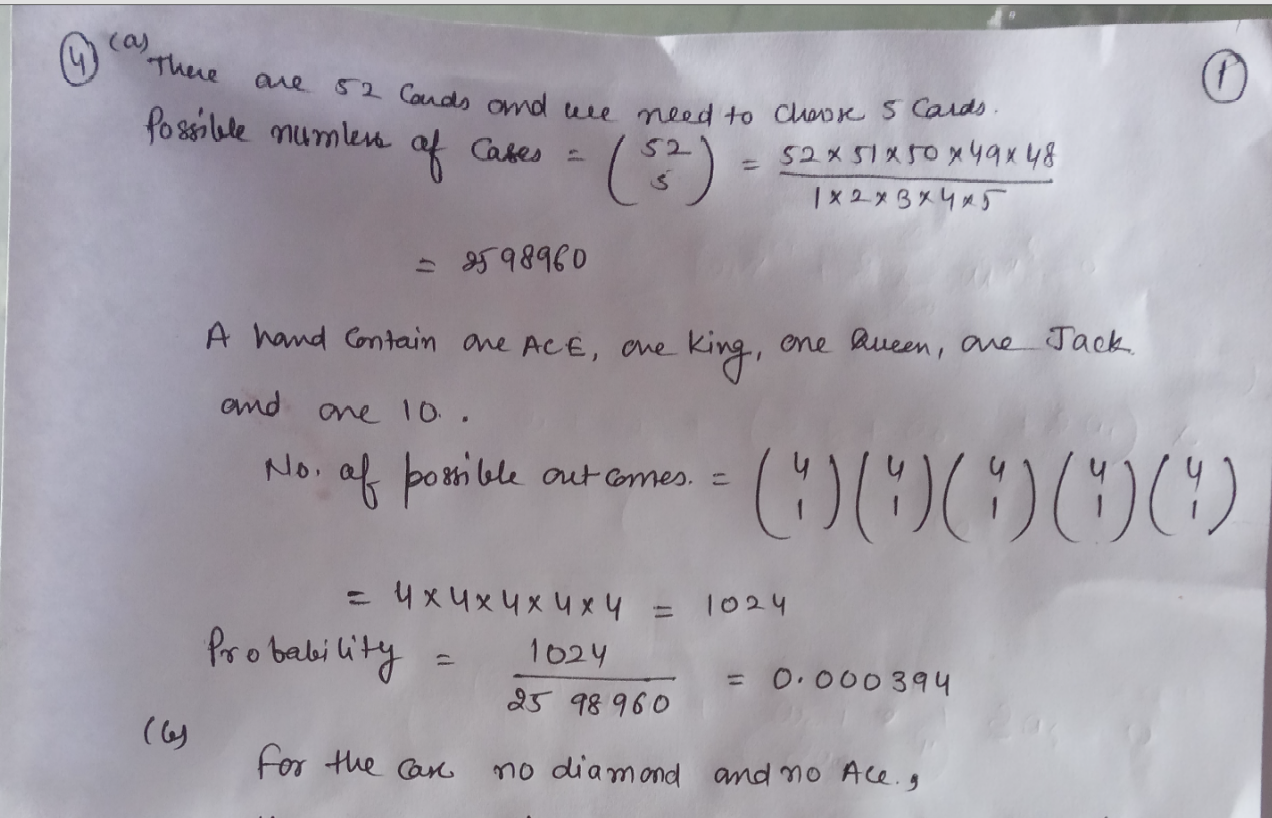 ④ (a) There are 52 Cards and we need to choose 5 Cards. ①
Possible numbers of Cases = (52 5) = 52 x 51 x 50 x 49 x 48 / 1 x 2 x 3 x 4 x 5
= 2598960
A hand Contain one ACE, one King, one Queen, one Jack
and one 10..
No. of possible out comes. = (4 1)(4 1)(4 1)(4 1)(4 1)
= 4 x 4 x 4 x 4 x 4 = 1024
Probability = 1024 / 25 98 960 = 0.000394
(b)
for the case no diamond and no Ace.,